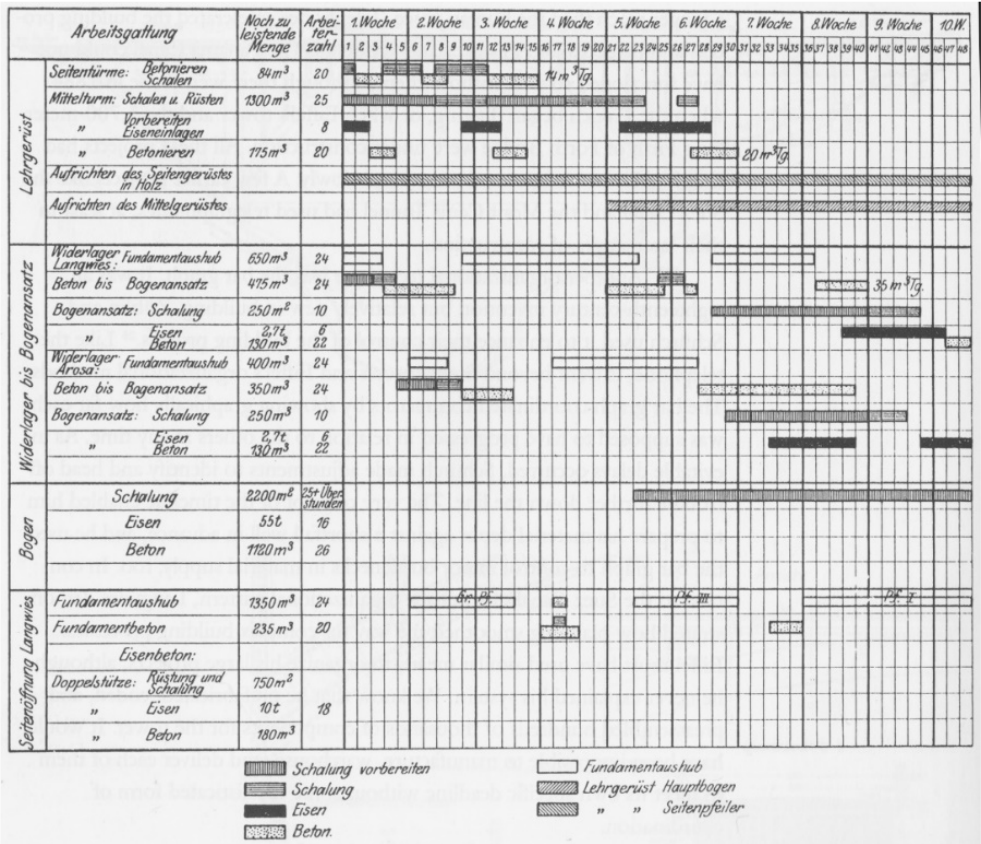 Arbeitsgattung Noch zu leistende Menge Arbeiterzahl 1.Woche 2.Woche 3.Woche 4.Woche 5.Woche 6.Woche 7.Woche 8.Woche 9.Woche 10.W.
1 2 3 4 5 6 7 8 9 10 11 12 13 14 15 16 17 18 19 20 21 22 23 24 25 26 27 28 29 30 31 32 33 34 35 36 37 38 39 40 41 42 43 44 45 46 47 48
Lehrgerüst
Seitentürme: Betonieren Schalen 84m³ 20 14m³Tg.
Mittelturm: Schalen u. Rüsten 1300m³ 25
„ Vorbereiten Eiseneinlagen 8
„ Betonieren 175m³ 20 20m³Tg.
Aufrichten des Seitengerüstes in Holz
Aufrichten des Mittelgerüstes
Widerlager bis Bogenansatz
Widerlager Langwies: Fundamentaushub 650m³ 24
Beton bis Bogenansatz 475m³ 24 35m³Tg.
Bogenansatz: Schalung 250m² 10
„ Eisen 2,7t 6
Beton 130m³ 22
Widerlager Arosa: Fundamentaushub 400m³ 24
Beton bis Bogenansatz 350m³ 24
Bogenansatz: Schalung 250m³ 10
„ Eisen 2,7t 6
Beton 130m³ 22
Bogen
Schalung 2200m² 25+Überstunden
Eisen 55t 16
Beton 1120m³ 26
Seitenöffnung Langwies
Fundamentaushub 1350m³ 24 Gr. Pf. Pf. III Pf. I
Fundamentbeton 235m³ 20
Eisenbeton:
Doppelstütze: Rüstung und Schalung 750m²
„ Eisen 10t 18
„ Beton 180m³
Schalung vorbereiten
Schalung
Eisen
Beton.
Fundamentaushub
Lehrgerüst Hauptbogen
„ „ Seitenpfeiler